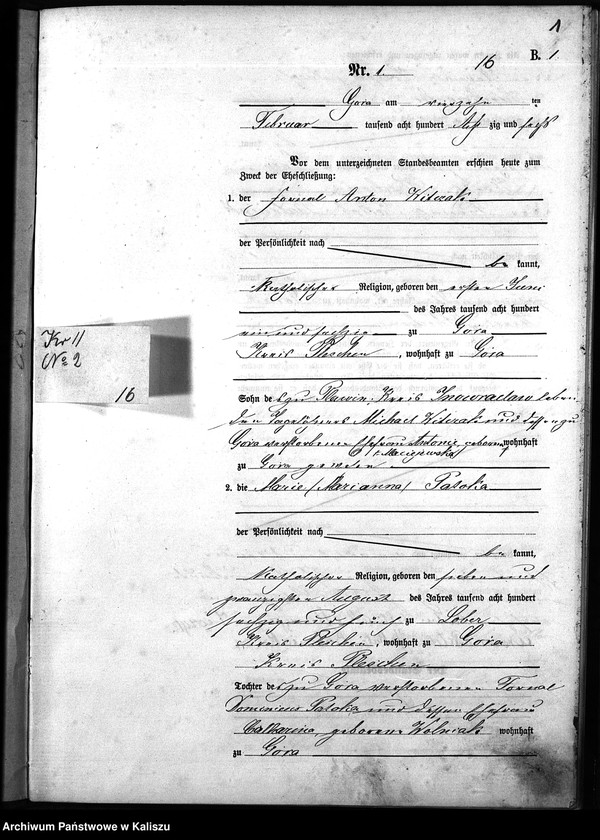 1
B. 1
16
Nr. 1.
Gora am vierzehn ten
Februar tausend acht hundert acht zig und sechs
Vor dem unterzeichneten Standesbeamten erschien heute zum
Zweck der Eheschließung:
1. der Fornal Anton Witczak
der Persönlichkeit nach
be kannt,
katholischer Religion, geboren den ersten Juni
des Jahres tausend acht hundert
ein und sechzig zu Gora
Kreis Pleschen, wohnhaft zu Gora
Sohn des zu Kreis Inowraclaw leben
den Tagelöhners Michael Witczak und dessen zu
Gora verstorbenen Ehefrau Antonie geborene wohnhaft
Maciejewska
zu Gora gewesen
2. die Marie (Marianna) Patoka
der Persönlichkeit nach
be kannt,
katholischer Religion, geboren den sieben und
zwanzigsten August des Jahres tausend acht hundert
sechzig und fünf zu Lober
Kreis Pleschen, wohnhaft zu Gora
Kreis Pleschen
Tochter des zu Gora verstorbenen Fornal
Dominicus Patoka und dessen Ehefrau
Catharina, geborene Wolniak wohnhaft
zu Gora
Kr 11
No 2
16
Archiwum Państwowe w Kaliszu